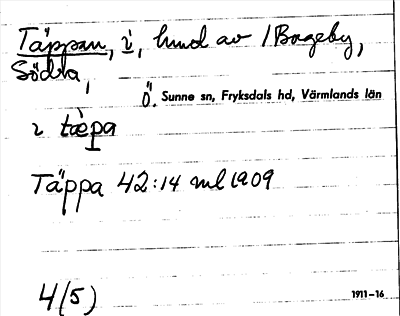 Täppan, i, hmd av / Bageby,
Södra,
Ö. Sunne sn, Fryksdals hd, Värmlands län
i tæ̀pa
Täppa 42:14 ml 1909
4(5)
1911-16